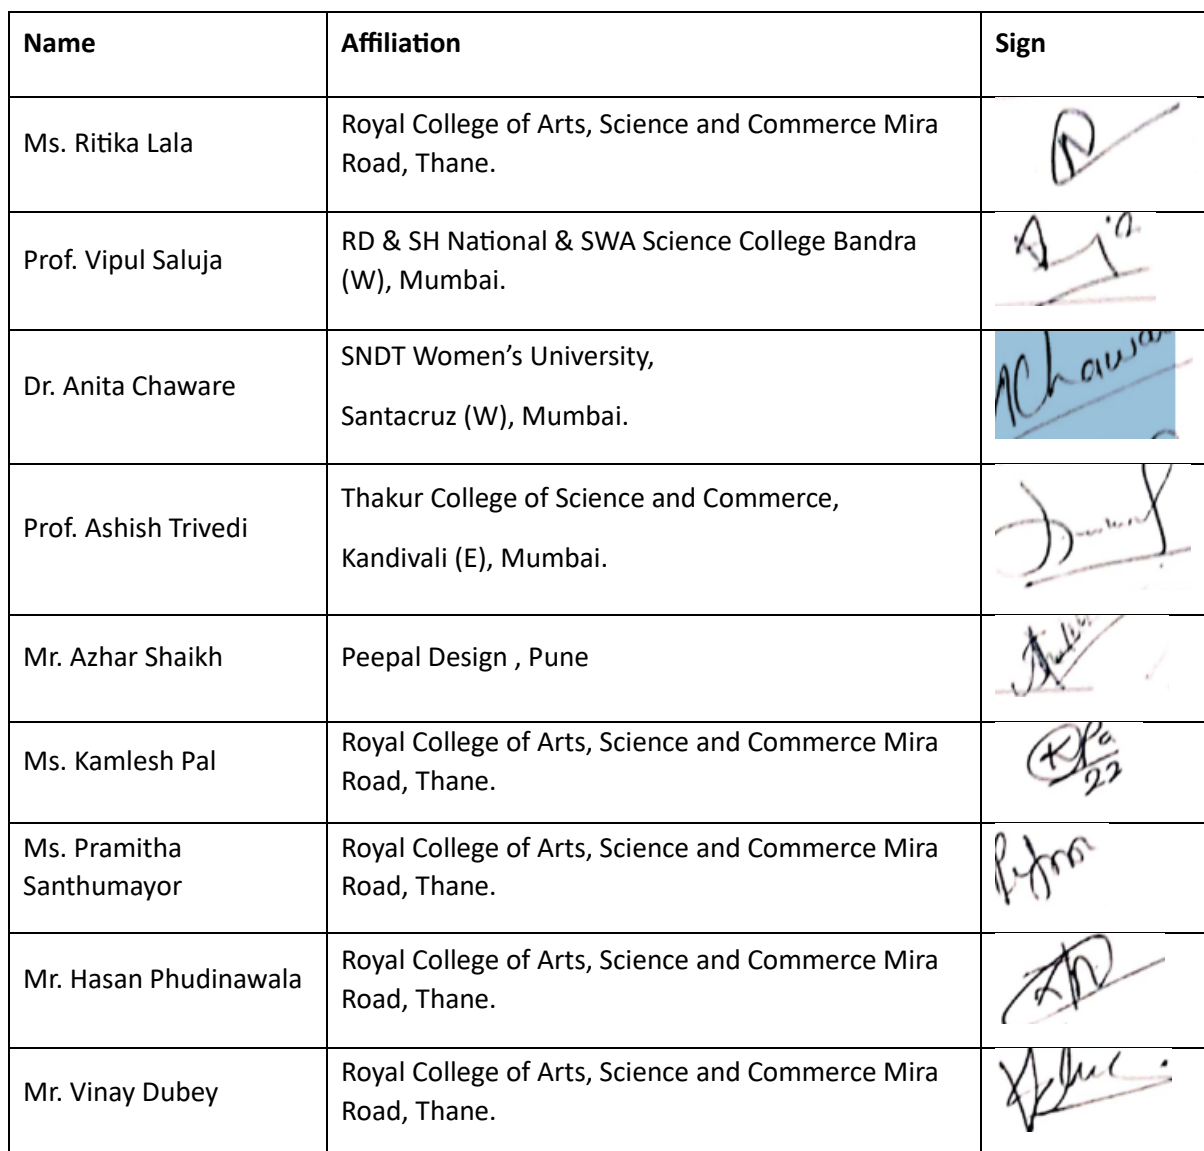 Name Affiliation Sign
Ms. Ritika Lala
Royal College of Arts, Science and Commerce Mira
Road, Thane.
Prof. Vipul Saluja
RD & SH National & SWA Science College Bandra
(W), Mumbai.
Dr. Anita Chaware
SNDT Women’s University,
Santacruz (W), Mumbai.
Prof. Ashish Trivedi
Thakur College of Science and Commerce,
Kandivali (E), Mumbai.
Mr. Azhar Shaikh
Peepal Design , Pune
Ms. Kamlesh Pal
Royal College of Arts, Science and Commerce Mira
Road, Thane.
22
Ms. Pramitha
Santhumayor
Royal College of Arts, Science and Commerce Mira
Road, Thane.
Mr. Hasan Phudinawala
Royal College of Arts, Science and Commerce Mira
Road, Thane.
Mr. Vinay Dubey
Royal College of Arts, Science and Commerce Mira
Road, Thane.